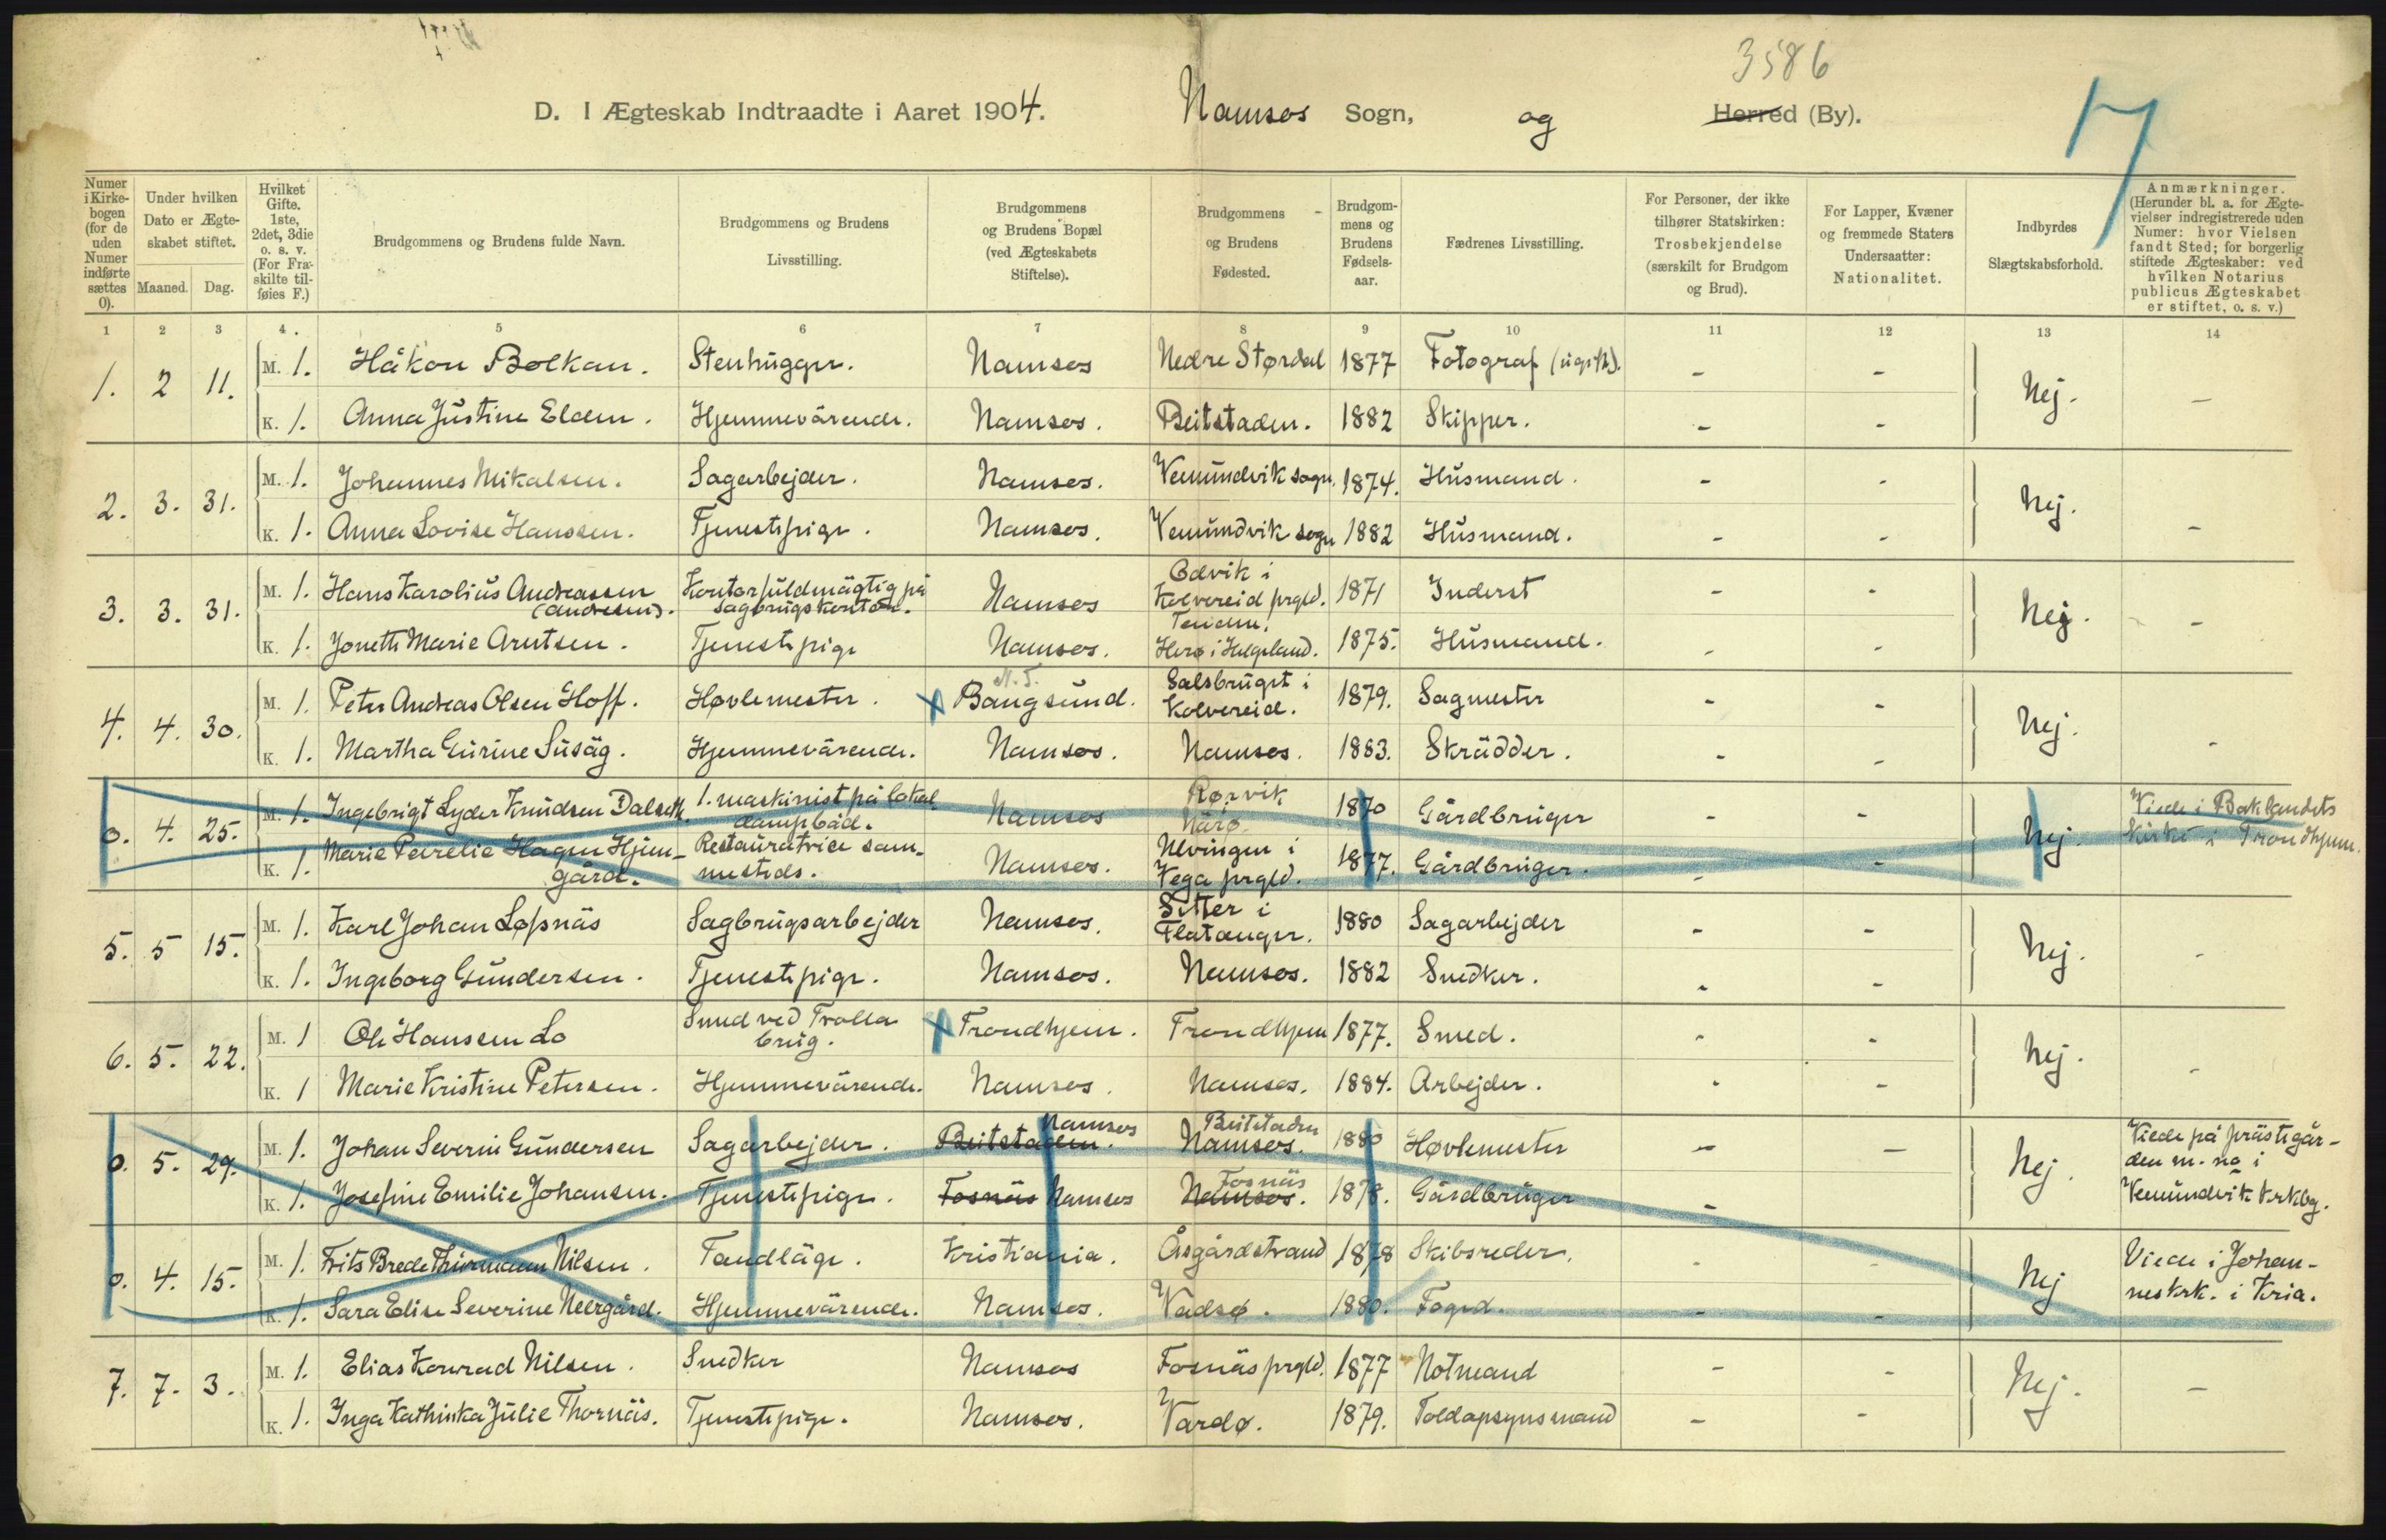 3586
D. I Ægteskab Indtraadte i Aaret 1904. Namsos Sogn, og Herred (By).
7
Numer i Kirkebogen (for de uden Numer indførte sættes 0).
Under hvilken Dato er Ægteskabet stiftet.
Maaned. Dag.
Hvilket Gifte. 1ste, 2det, 3die o. s. v. (For Fraskilte tilføies F.)
Brudgommens og Brudens fulde Navn.
Brudgommens og Brudens Livsstilling.
Brudgommens og Brudens Bopæl (ved Ægteskabets Stiftelse).
Brudgommens og Brudens Fødested.
Brudgommens og Brudens Fødselsaar.
Fædrenes Livsstilling.
For Personer, der ikke tilhører Statskirken: Trosbekjendelse (særskilt for Brudgom og Brud).
For Lapper, Kvæner og fremmede Staters Undersaatter: Nationalitet.
Indbyrdes Slægtskabsforhold.
Anmærkninger. (Herunder bl. a. for Ægtevielser indregistrerede uden Numer: hvor Vielsen fandt Sted; for borgerlig stiftede Ægteskaber: ved hvilken Notarius publicus Ægteskabet er stiftet, o. s. v.)
1 2 3 4. 5 6 7 8 9 10 11 12 13 14
1. 2 11. M. 1. Håkon Bolkan. Stenhugger. Namsos Nedre Størdal 1877 Fotograf - - Nej. -
K. 1. Anna Justine Elden. Hjemmevärende. Namsos. Beitstaden. 1882 Skipper. - -
2. 3. 31. M. 1. Johannes Mikalsen. Sagarbejder. Namsos. Vemundvik sogn. 1874. Husmand. - - Nej. -
K. 1. Anna Lovise Hanssen. Tjenestepige. Namsos. Vemundvik sogn 1882 Husmand. - -
3. 3. 31. M. 1. Hans Karolius Andreassen (Andresen). Kontorfuldmägtig på sagbrugskontor. Namsos. Odvik i Kolvereid prgld. 1871 Inderst - - Nej. -
K. 1. Jonette Marie Arntsen. Tjenestepige Namsos. Herø i Helgeland. 1875. Husmand. - -
4. 4. 30. M. 1. Peter Andreas Olsen Hoff. Høvlemester. x N.T. Bangsund. Salsbruget i Kolvereid. 1879. Sagmester - - Nej. -
K. 1. Martha Gurine Susäg. Hjemmevärende. Namsos. Namsos. 1883. Skrädder. - -
0. 4. 25. M. 1. Ingebrigt Lyder Knudsen Dalseth. 1. maskinist på lokaldampbåd. Namsos Rørvik Närø. 1870 Gårdbruger - - Nej. Viede i Baklandets kirke i Trondhjem.
K. 1. Marie Hagen Hjemgård. Restauratrice sammesteds. Namsos. Ulvingen i Vega prgld. 1877. Gårdbruger. - -
5. 5 15. M. 1. Karl Johan Løpnäs Sagbrugsarbejder Namsos. Sitter i Flatanger. 1880 Sagarbejder - - Nej. -
K. 1. Ingeborg Gundersen. Tjenestepige. Namsos. Namsos. 1882 Snedker. - -
6. 5. 22. M. 1 Ole Hanssen Lo Smed ved Trolla brug. x Trondhjem. Trondhjem 1877. Smed. - - Nej. -
K. 1 Marie Kristine Petersen. Hjemmevärende. Namsos. Namsos. 1884. Arbejder. - -
0. 5. 29. M. 1. Johan Severin Gundersen Sagarbejder. Beitstaden. Namsos Namsos. Beitstaden 1880 Høvlemester - - Nej. Viede på prästegården m. no i Vemundvik krkbg.
K. 1. Josefine Emilie Johansen. Tjenestepige. Fosnäs Namsos Namsos. Fosnäs 1878. Gårdbruger -
0. 4. 15. M. 1. Frits Brede Thurmann Nilsen. Tandläge. Kristiania. Åsgårdstrand 1878 Skibsreder. - - Nej Viede i Johanneskrk. i Kria.
K. 1. Sara Elise Severine Neergård. Hjemmevärende. Namsos. Vadsø. 1880. Foged. - -
7. 7. 3. M. 1. Elias Konrad Nilsen. Snedker Namsos Fosnäs prgld. 1877 Notmand - - Nej. -
K. 1. Inga Kathinka Julie Thornäs. Tjenestepige. Namsos. Vardø. 1879. Toldopsynsmand - -